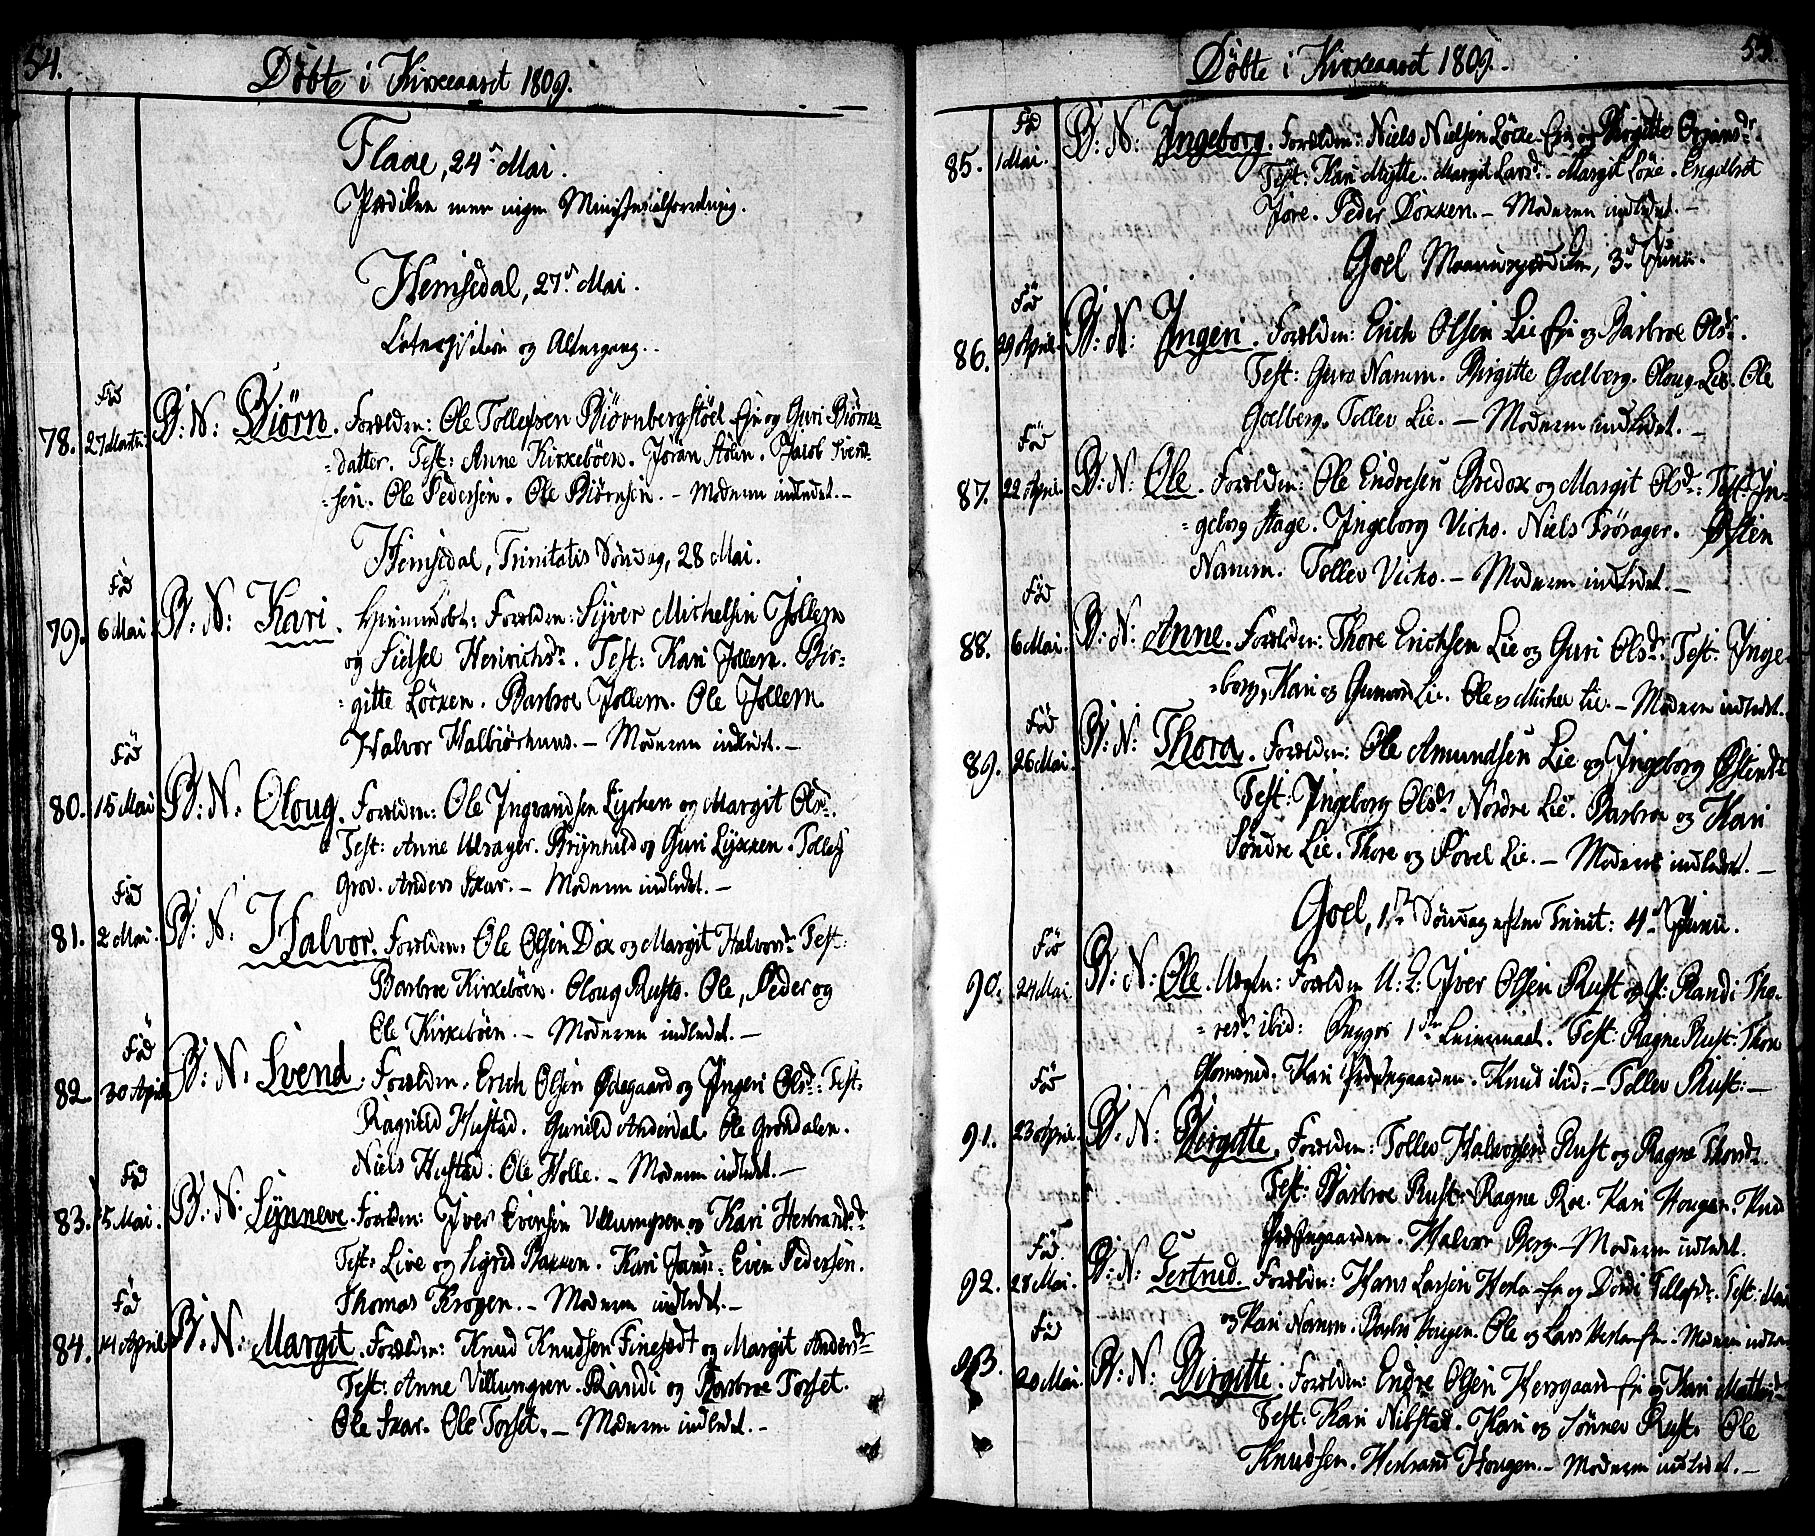 54.
Döbte i Kirkeaaret 1809.
Flaae, 24de Mai.
Prædiken men ingen Ministerialforretning.
Hemsedal, 27de Mai.
Catechisation og Altergang.
Fød
78. 27 Martii. B: N: Biörn. Forældre: Ole Tollefsen Biörnbergstöel Eje og Guri Biörns-
datter. Test: Anne Kirkeböen. Jöran Stölen. Jacob Svend-
sen. Ole Pedersen. Ole Biörnsen. – Moderen indledet. –
Hemsedal, Trinitatis Söndag, 28 Mai.
Fød
79. 6 Mai. B: N: Kari. Hjemmedöbt: Forældre: Syver Michelsen Jollem
og Sidsel Henrichsdr. Test: Kari Jollem. Bir-
gitte Löcken. Barbroe Jollem. Ole Jollem.
Halvor Halbiörhuus. – Moderen indledet. –
Fød
80. 15 Mai B: N: Oloug. Forældre: Ole Ingvandsen Lycken og Margit Olsdr.
Test: Anne Ulsager. Brynhild og Guri Lykken. Tollef
Grov. Anders Skar. – Moderen indledet. –
Fød
81. 2 Mai. B: N: Halvor. Forældre: Ole Olsen Dox og Margit Halvorsdr. Test:
Barbroe Kirkeböen. Oloug Rusto. Ole, Peder og
Ole Kirkeböen. – Moderen indledet. –
Fød
82. 30 April B: N: Svend. Forældre: Erich Olsen Ødegaard og Ingeri Olsdr. Test:
Ragnild Hustad. Gunild Anderdal. Ole Gröndalen.
Niels Hustad. Ole Holle. – Moderen indledet. –
Fød
83. 5 Mai. B: N: Synneve. Forældre: Iver Evensen Ullungsen og Kari Herbrandsdr.
Test: Live og Sigrid Bakken. Kari . Even Pedersen.
Thomas Krogen. – Moderen indledet. –
Fød
84. 14 April B: N: Margit. Forældre: Knud Knudsen Finesædt og Margit Andersdr.
Test: Anne Villungsen. Randi og Barbroe Torset.
Ole Skar. Ole Torset. – Moderen indledet. –
55.
Döbte i Kirkeaaret 1809.
Fød
85. 1 Mai. B: N: Ingeborg. Forældre: Niels Nielsen Löcke Eje og Birgitte Örjansdr
Test: Kari Mytte. Margit Larsdr. Margit Löke. Engelbret
Jore. Peder Dokken. – Moderen indledet. –
Goel Maanedsprædiken, 3de Junii.
Fød
86. 29 April. B: N: Ingeri. Forældre: Erich Olsen Lie Eje og Barbroe Olsdr.
Test: Guro Narum. Birgitte Goelberg. Oloug Lie. Ole
Goelberg. Tollev Lie. – Moderen indledet. –
Fød
87. 22 April. B: N: Ole. Forældre: Ole Endresen Bredox og Margit Olsdr: Test: In-
geborg Hage. Ingeborg Vicho. Niels Frösager. Østen
Narum. Tollev Vicho. – Moderen indledet. –
Fød
88. 6 Mai. B: N: Anne. Forældre: Thore Erichsen Lie og Guri Olsdr: Test: Inge-
borg, Kari og Gunvor Lie. Ole og Michel Lie. – Moderen indledet.
Fød
89. 26 Mai. B: N: Thora. Forældre: Ole Amundsen Lie og Ingeborg Østensdr
Test: Ingeborg Olsdr Nordre Lie. Barbroe og Kari
Söndre Lie. Thore og Povel Lie. – Moderen indledet. –
Goel, 1ste Söndag efter Trinit: 4de Junii.
Fød
90. 24 Mai. B: N: Ole. Uægte: Forældre U: L: Iver Olsen Rust og P: Randi Tho-
resdr ibid: Begges 1ste Leiermaal. Test: Ragne Rust. Thore
Glomsrud. Kari Prestegaarden. Knud ibid: – Tollev Rust: –
Fød
91. 23 April. B: N: Birgitte. Forældre: Tollev Halvorsen Rust og Ragne Thordr.
Test: Barbroe Rust. Ragne Roe. Kari Hougen. Knud
Prestegaarden. Halvor Berg. – Moderen indledet.
Fød
92. 28 Mai. B: N: Gertrud. Forældre: Hans Larsen Hesla Eje og Dordi Tollefsdr. Test: Mari
og Kari Narum. Hougen. Ole og Lars Hesla Eje: Moderen indledet
Fød
93. 20 Mai. B: N: Birgitte. Forældre: Endre Olsen Hersgaard Eje og Kari Mattisdr
Test: Kari Nibstad. Kari og Synnev Rust. Ole
Knudsen. Herbrand Hougen. – Moderen indledet. –